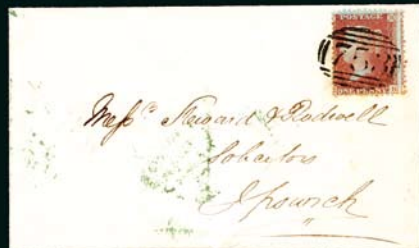 POSTAGE
Messrs Steward & Rodwell
Solicitors
Ipswich